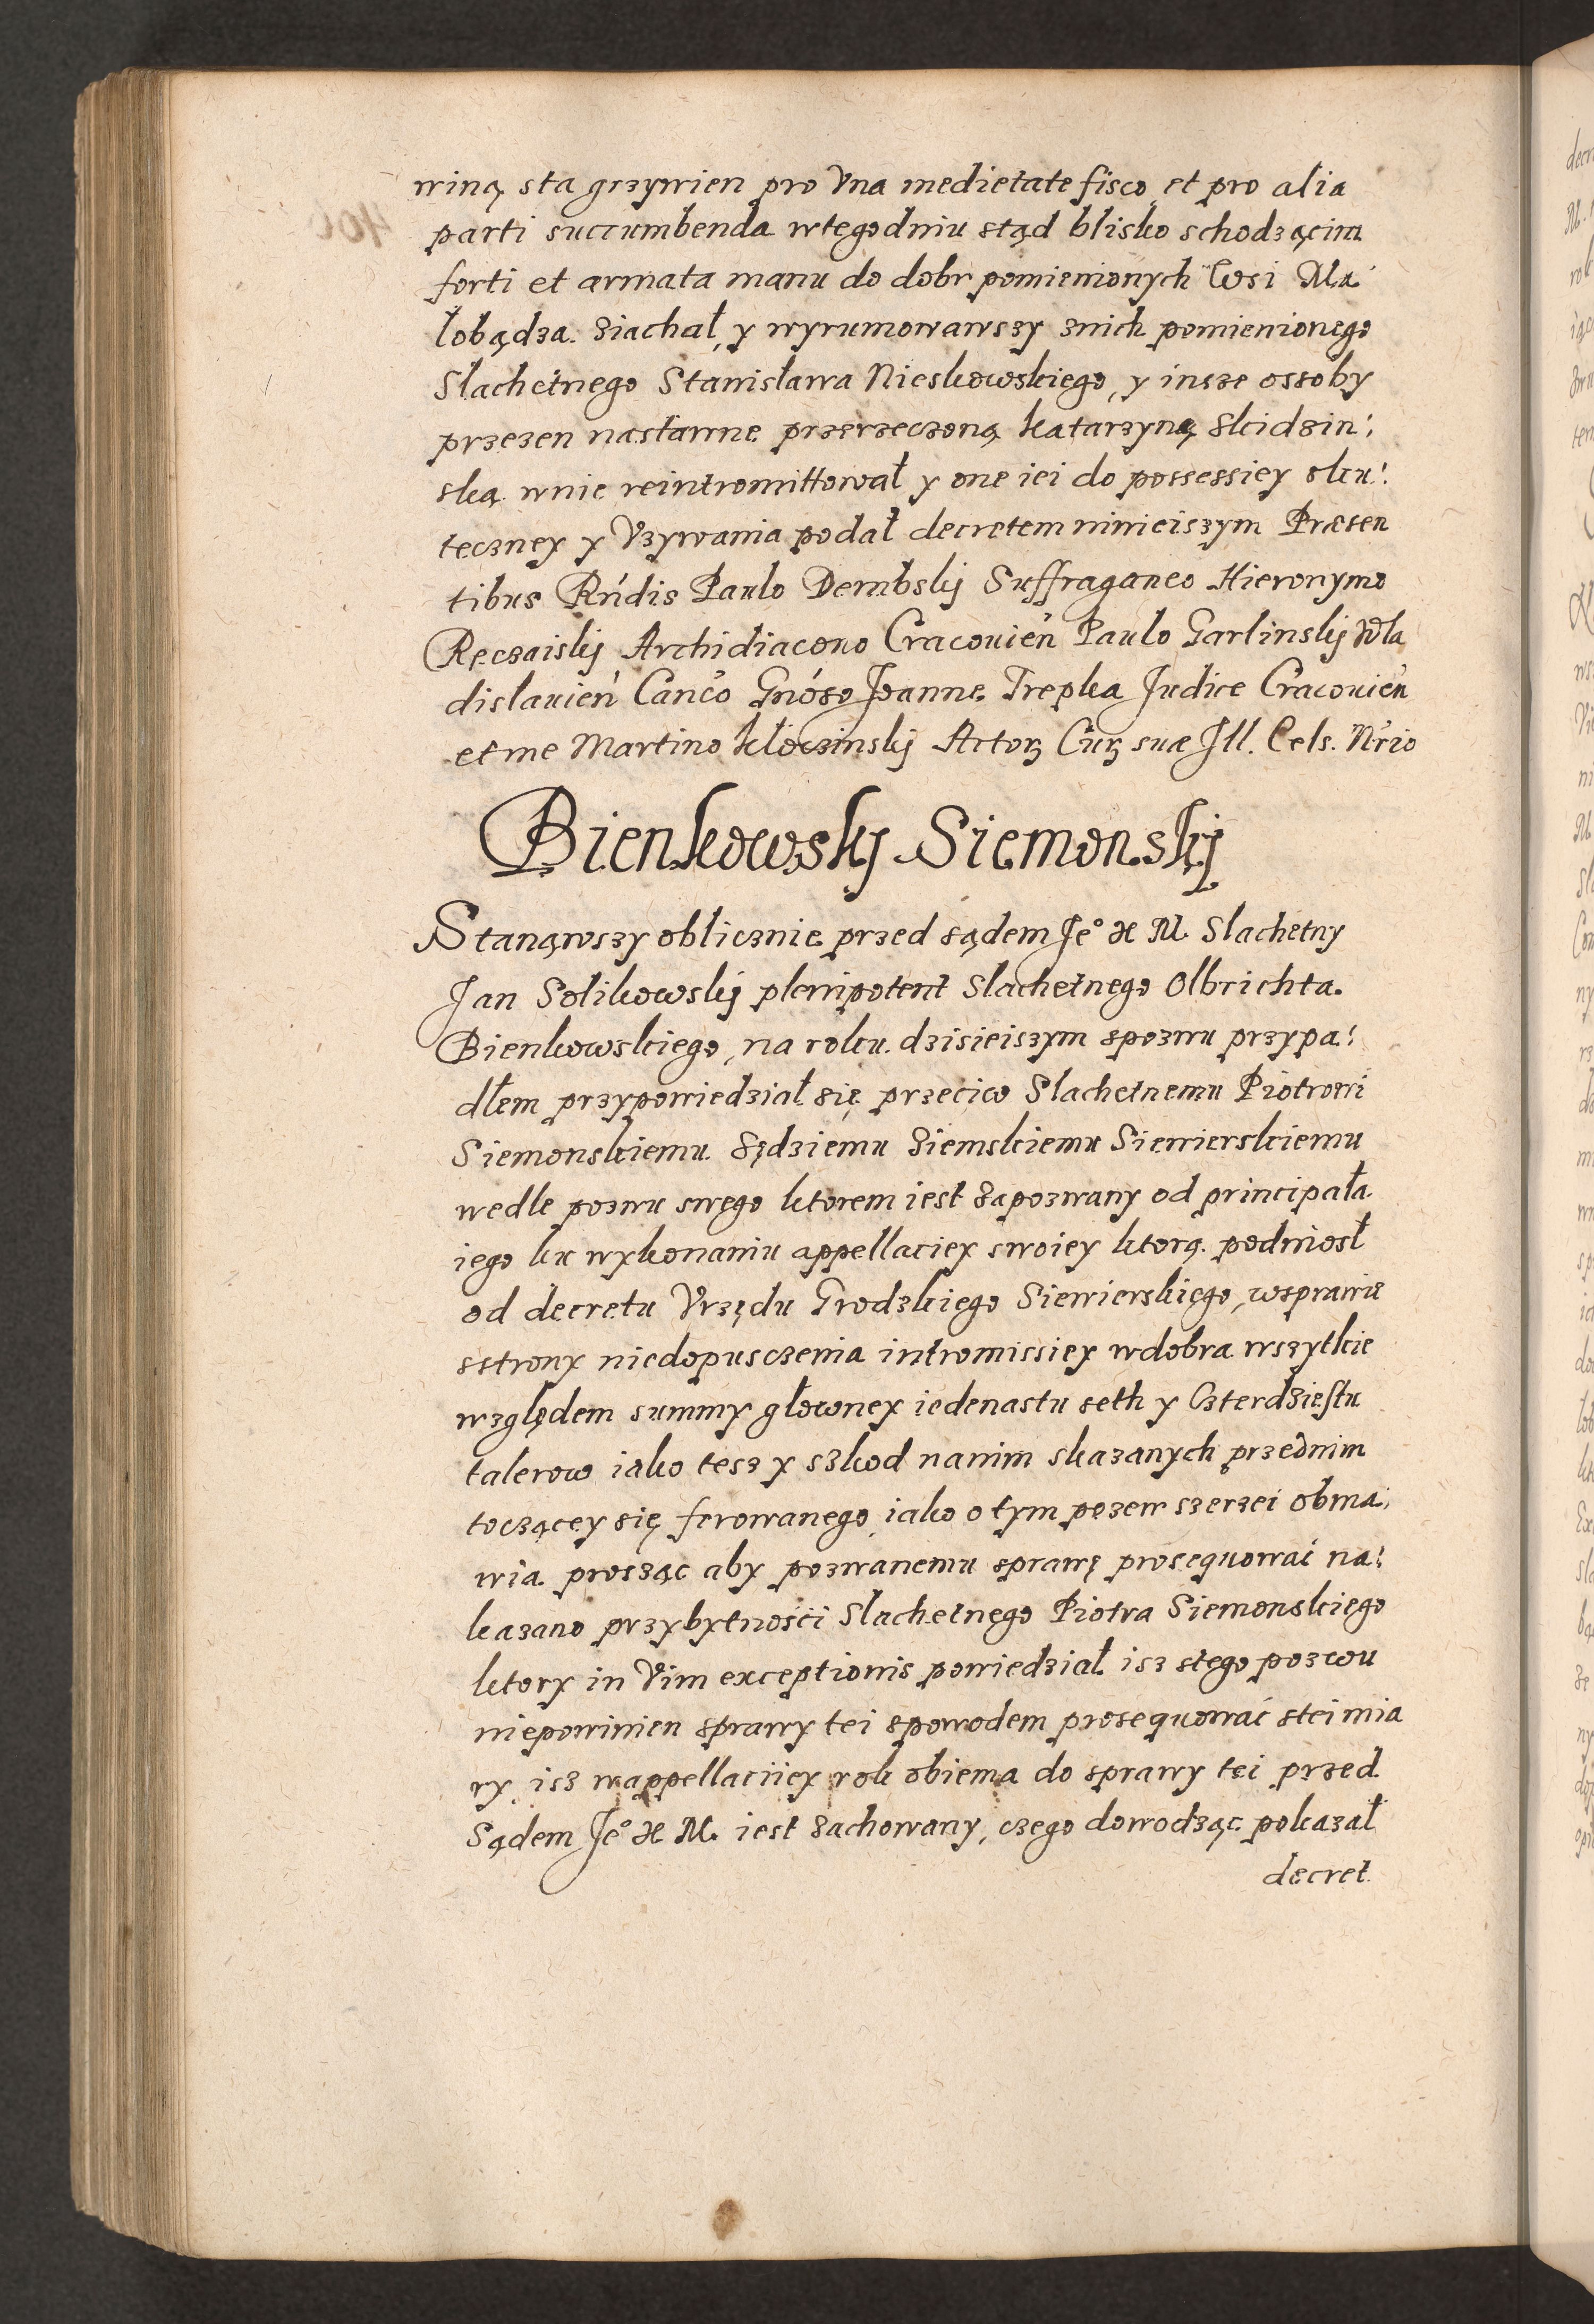 winą sta grzywien pro Vna medietate fisco et pro alia
parti succumbenda wtegodniu stąd blisko schodzącim
forti et armata manu do dobr pomienionych Wsi Ma
łobądza ziachał, y wyrumowawszy znich pomienionego
Slachetnego Stanisława Nieskowskiego, y insze ossoby
przezen nasławne przerzeczoną Katarzynę Skidzin:
ską wnie reintromittował y one iei do possessiey sku:
teczney y Vzywania podał decretem ninieiszym Præsen
tibus Rńdis Paulo Dembskij Suffraganeo Hieronymo
Reczaiskij Archidiacono Cracouień Paulo Garlinskij Wła
dislauień Canco Gnóso Joanne Trepka Judice Cracouień
et me Martino Kłoczinskij Actorʒ Curʒ suæ Ill. Cels. Nrio
Bienkowskij Siemonskij
Stanąwszy oblicznie przed sądem Je° X M. Slachetny
Jan Solikowskij plenipotent Slachetnego Olbrichta
Bienkowskiego, na roku dzisieiszym spozwu przypa:
dłem przypowiedział się przeciw Slachetnemu Piotrowi
Siemonskiemu Sędziemu Ziemskiemu Siewierskiemu
wedle pozwu swego ktorem iest zapozwany od principała
iego ku wykonaniu appellaciey swoiey ktorą podniosł
od decretu Vrzędu Grodzkiego Siewierskiego, wsprawie
sstrony niedopusczenia intromissiey wdobra wszytkie
względem summy głowney iedenastu seth y Czterdziestu
talerow iako tesz y szkod nanim skazanych przednim
toczącey się ferowanego iako o tym pozew szerzei obma:
wia prosząc aby pozwanemu sprawę prosequowac na:
kazano przybytności Slachetnego Piotra Siemonskiego
ktory in Vim exceptionis powiedział isz stego pozwu
niepowinien sprawy tei spowodem prosequowac stei mia
ry, isz wappellaciiey rok obiema do sprawy tei przed
Sądem Je° X M. iest zachowany, czego dowodząc pokazał
decret